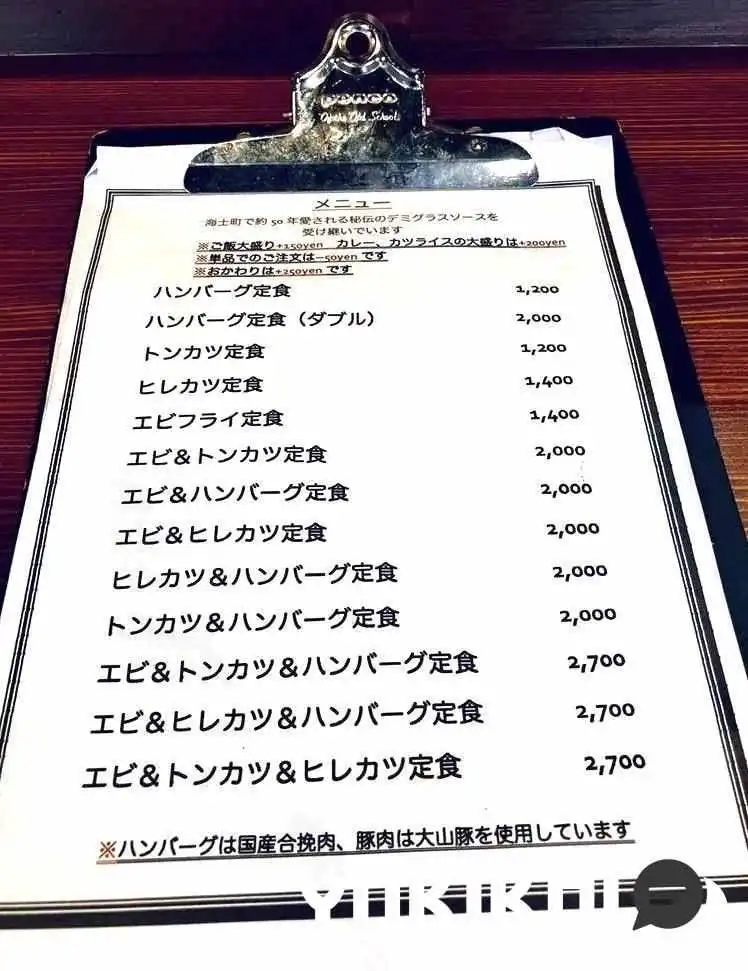 Of the Old School
メニュー
海士町で約 50 年愛される秘伝のデミグラスソースを
受け継いでいます
※ご飯大盛り+150yen　カレー、カツライスの大盛りは+200yen
※単品でのご注文は−50yen です
※おかわりは+250yen です
ハンバーグ定食 1,200
ハンバーグ定食（ダブル） 2,000
トンカツ定食 1,200
ヒレカツ定食 1,400
エビフライ定食 1,400
エビ＆トンカツ定食 2,000
エビ＆ハンバーグ定食 2,000
エビ＆ヒレカツ定食 2,000
ヒレカツ＆ハンバーグ定食 2,000
トンカツ＆ハンバーグ定食 2,000
エビ＆トンカツ＆ハンバーグ定食 2,700
エビ＆ヒレカツ＆ハンバーグ定食 2,700
エビ＆トンカツ＆ヒレカツ定食 2,700
※ハンバーグは国産合挽肉、豚肉は大山豚を使用しています